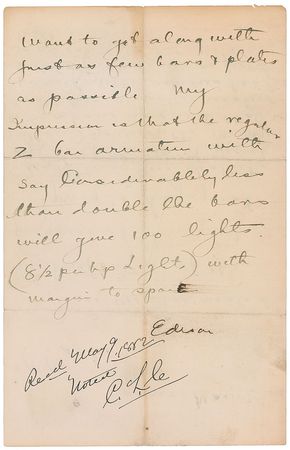 want to get along with
just as few bars & plates
as possible My
Impression is that the regular
Z bar armature with
say Considerablely less
than double the bars
will give 100 lights.
(8½ per hp Lights) with
margin to spare
Edison
Recd May 9, 1882
Noted
C. L. C.